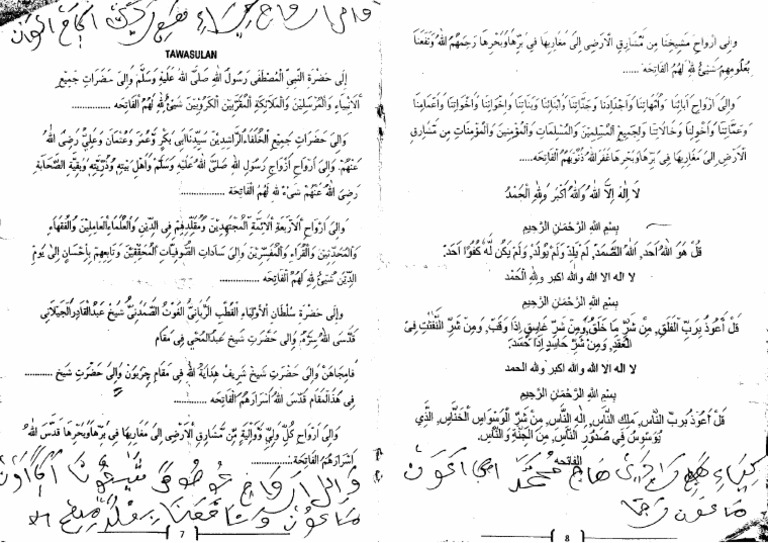 TAWASULAN
إلَى حَضْرَةِ النَّبِيِّ الْمُصْطَفَى رَسُوْلِ اللهِ صَلَّى اللهُ عَلَيْهِ وَسَلَّمَ وَاِلَى حَضَرَاتِ جَمِيْعِ
اْلاَنْبِيَآءِ وَالْمُرْسَلِيْنَ وَالْمَلاَئِكَةِ الْمُقَرَّبِيْنَ الْكَرُوْبِيِّيْنَ شَيْئٌ ِللهِ لَهُمُ اْلفَاتِحَه ...............
وَاِلَى حَضَرَاتِ جَمِيْعِ الْخُلَفَاءِ الرَّاشِدِيْنَ سَيِّدِنَا اَبِى بَكْرٍ وَعُمَرَ وَعُثْمَانَ وَعَلِيٍّ رَضِىَ اللهُ
عَنْهُمْ. وَاِلَى اَرْوَاحِ اَزْوَاجِ رَسُوْلِ اللهِ صَلَّى اللهُ عَلَيْهِ وَسَلَّمَ وَاَهْلِ بَيْتِهِ وَذُرِّيَّتِهِ وَبَقِيَّةِ الصَّحَابَةِ
رَضِىَ اللهُ عَنْهُمْ شَىْءٌ ِللهِ لَهُمُ الْفَاتِحَه ...............
وَاِلَى اَرْوَاحِ اْلاَرْبَعَةِ اْلاَئِمَّةِ الْمُجْتَهِدِيْنَ وَمُقَلِّدِهِمْ فِى الدِّيْنِ وَالْعُلَمَاءِ الْعَامِلِيْنَ وَالْفُقَهَاءِ
وَالْمُحَدِّثِيْنَ وَالْقُرَّاءِ وَالْمُفَسِّرِيْنَ وَاِلَى سَادَاتِ الصُّوْفِيَاتِ الْمُحَقِّقِيْنَ وَتَابِعِهِمْ بِاِحْسَانٍ اِلَى يَوْمِ
الدِّيْنِ شَيْئٌ ِللهِ لَهُمُ الْفَاتِحَه ...............
وَاِلَى حَضْرَةِ سُلْطَانِ اْلاَوْلِيَاءِ الْقُطْبِ الرَّبَّانِيْ الْغَوْثِ الصَّمَدَنِيْ شَيْخ عَبْدُالْقَادِرِ الْجَيْلاَنِي
قَدَّسَ اللهُ سِرَّهُ وَاِلَى حَضْرَتِ شَيْخ عَبْدُالْمُحْيِ فِى مَقَام
فَامِجَاهَنْ وَاِلَى حَضْرَتِ شَيْخ شَرِيْف هِدَايَةُ اللهِ فِى مَقَام چِرَبَوْن وَاِلَى حَضْرَتِ شَيْخ ............
فِى هَذَالْمَقَامِ قَدَّسَ اللهُ اَسْرَارَهُمُ الْفَاتِحَه ...............
وَاِلَى اَرْوَاحِ كُلِّ وَلِيٍّ وَوَلِيَّةٍ مِّنْ مَّشَارِقِ اْلاَرْضِ اِلَى مَغَارِبِهَا فِى بَرِّهَا وَبَحْرِهَا قَدَّسَ اللهُ
اَسْرَارَهُمُ الْفَاتِحَة ...............
7
وَاِلَى اَرْوَاحِ مَشَيِخِنَا مِنْ مَّشَارِقِ اْلاَرْضِ اِلَى مَغَارِبِهَا فِى بَرِّهَا وَبَحْرِهَا رَحِمَهُمُ اللهُ وَنَفَعَنَا
بِعُلُوْمِهِمْ شَيْئٌ ِللهِ لَهُمُ الْفَاتِحَة ......
وَاِلَى اَرْوَاحِ اَبَائِنَا وَاُمَّهَاتِنَا وَاَجْدَادِنَا وَجَدَّاتِنَا وَاَبْنَائِنَا وَبَنَاتِنَا وَاِخْوَانِنَا وَاَخَوَاتِنَا وَاَعْمَامِنَا
وَعَمَّاتِنَا وَاَخْوَلِنَا وَخَالاَتِنَا وَلِجَمِيْعِ الْمُسْلِمِيْنَ وَالْمُسْلِمَاتِ وَالْمُؤْمِنِيْنَ وَالْمُؤْمِنَاتِ مِنْ مَّشَارِقِ
اْلاَرْضِ اِلَى مَغَارِبِهَا فِى بَرِّهَا وَبَحْرِهَا غَفَرَ اللهُ ذُنُوْبَهُمُ الْفَاتِحَة.......
لاَ اِلهَ اِلاَّ اللهُ وَاللهُ اَكْبَر وَِللهِ الْحَمْدُ
بِسْمِ اللهِ الرَّحْمَنِ الرَّحِيْمِ
قُلْ هُوَ اللهُ اَحَد، اَللهُ الصَّمَد، لَمْ يَلِدْ وَلَمْ يُوْلَد، وَلَمْ يَكُنْ لَّهُ كُفُوًا اَحَد.
لا اله الا الله والله اكبر ولله الحمد
بِسْمِ اللهِ الرَّحْمَنِ الرَّحِيْمِ
قُلْ اَعُوْذُ بِرَبِّ الْفَلَق، مِنْ شَرِّ مَا خَلَق، وَمِنْ شَرِّ غَاسِقٍ اِذَا وَقَب، وَمِنْ شَرِّ النَّفّٰثٰتِ فِى
الْعُقَد، وَمِنْ شَرِّ حَاسِدٍ اِذَا حَسَد.
لا اله الا الله والله اكبر ولله الحمد
بِسْمِ اللهِ الرَّحْمَنِ الرَّحِيْمِ
قُلْ اَعُوْذُ بِرَبِّ النَّاس، مَلِكِ النَّاس، اِلهِ النَّاس، مِنْ شَرِّ الْوَسْوَاسِ الْخَنَّاس، الَّذِي
يُوَسْوِسُ فِي صُدُوْرِ النَّاس، مِنَ الْجِنَّةِ وَالنَّاس.
الفاتحه
8